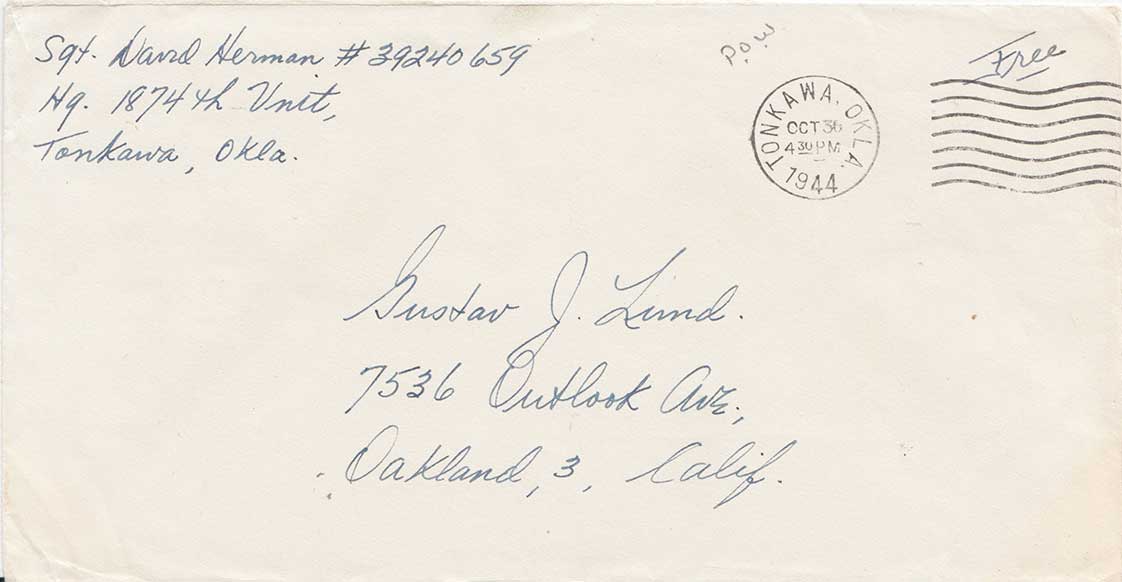 Sgt. David Herman # 39240659
Hq. 1874th Unit,
Tonkawa, Okla.
P.O.W.
Free
TONKAWA, OKLA.
OCT 30
4 30 PM
1944
Gustav J. Lund.
7536 Outlook Ave.,
Oakland, 3, Calif.